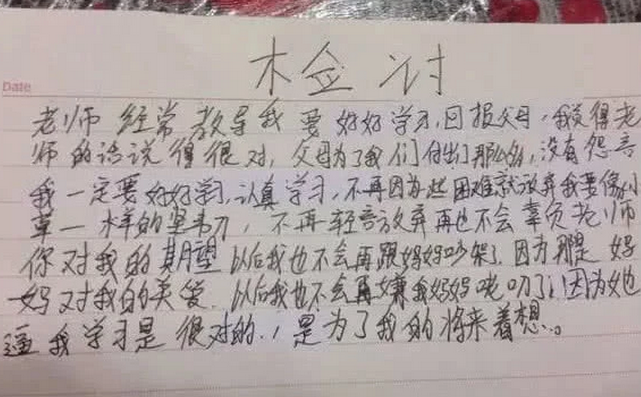 Date
检讨
老师经常教导我要好好学习,回报父母,我觉得老
师的话说得很对,父母为了我们付出那么多,没有怨言
我一定要好好学习,认真学习,不再因为些困难就放弃我要像小
草一样的坚韧,不再轻言放弃再也不会辜负老师
你对我的期望以后我也不会再跟妈妈吵架了,因为那是妈
妈对我的关爱,以后我也不会再嫌我妈妈唠叨了,因为她
逼我学习是很对的,是为了我的将来着想。